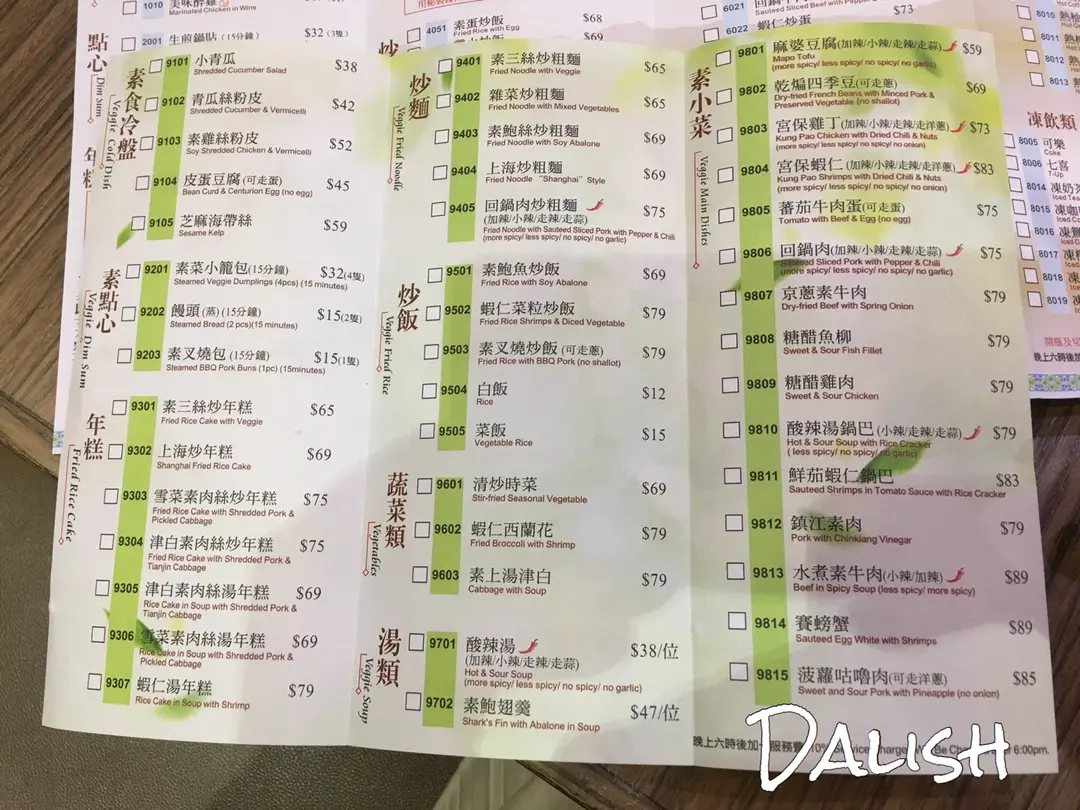 1010 美味醉雞
Marinated Chicken in Wine
點心
Dim Sum
2001 生煎鍋貼 (15分鐘) $32 (3隻)
4051 素蛋炒飯 $68
Fried Rice with Egg
$69
6021
Sauteed Sliced Beef with Pepper $73
6022 蝦仁炒蛋
8010
8011
8012
8013
凍飲類
8005 可樂
Coke
8006 七喜
7-Up
8014
8015
8016
8017
8018
8019
素食冷盤
Veggie Cold Dish
9101 小青瓜 $38
Shredded Cucumber Salad
9102 青瓜絲粉皮 $42
Shredded Cucumber & Vermicelli
9103 素雞絲粉皮 $52
Soy Shredded Chicken & Vermicelli
9104 皮蛋豆腐(可走蛋) $45
Bean Curd & Centurion Egg (no egg)
9105 芝麻海帶絲 $59
Sesame Kelp
素點心
Veggie Dim Sum
9201 素菜小籠包(15分鐘) $32(4隻)
Steamed Veggie Dumplings (4pcs) (15 minutes)
9202 饅頭(蒸)(15分鐘) $15(2隻)
Steamed Bread (2 pcs)(15 minutes)
9203 素叉燒包 (15分鐘) $15(1隻)
Steamed BBQ Pork Buns (1pc) (15minutes)
年糕
Fried Rice Cake
9301 素三絲炒年糕 $65
Fried Rice Cake with Veggie
9302 上海炒年糕 $69
Shanghai Fried Rice Cake
9303 雪菜素肉絲炒年糕 $75
Fried Rice Cake with Shredded Pork &
Pickled Cabbage
9304 津白素肉絲炒年糕 $75
Fried Rice Cake with Shredded Pork &
Tianjin Cabbage
9305 津白素肉絲湯年糕 $69
Rice Cake in Soup with Shredded Pork &
Tianjin Cabbage
9306 雪菜素肉絲湯年糕 $69
Rice Cake in Soup with Shredded Pork &
Pickled Cabbage
9307 蝦仁湯年糕 $79
Rice Cake in Soup with Shrimp
炒麵
Veggie Fried Noodle
9401 素三絲炒粗麵 $65
Fried Noodle with Veggie
9402 雜菜炒粗麵 $65
Fried Noodle with Mixed Vegetables
9403 素鮑絲炒粗麵 $69
Fried Noodle with Soy Abalone
9404 上海炒粗麵 $69
Fried Noodle "Shanghai" Style
9405 回鍋肉炒粗麵 $75
(加辣/小辣/走辣/走蒜)
Fried Noodle with Sauteed Sliced Pork with Pepper & Chili
(more spicy/ less spicy/ no spicy/ no garlic)
炒飯
Veggie Fried Rice
9501 素鮑魚炒飯 $69
Fried Rice with Soy Abalone
9502 蝦仁菜粒炒飯 $79
Fried Rice Shrimps & Diced Vegetable
9503 素叉燒炒飯 (可走蔥) $79
Fried Rice with BBQ Pork (no shallot)
9504 白飯 $12
Rice
9505 菜飯 $15
Vegetable Rice
蔬菜類
Vegetables
9601 清炒時菜 $69
Stir-fried Seasonal Vegetable
9602 蝦仁西蘭花 $79
Fried Broccoli with Shrimp
9603 素上湯津白 $79
Cabbage with Soup
湯類
Veggie Soup
9701 酸辣湯 $38/位
(加辣/小辣/走辣/走蒜)
Hot & Sour Soup
(more spicy/ less spicy/ no spicy/ no garlic)
9702 素鮑翅羹 $47/位
Shark's Fin with Abalone in Soup
素小菜
Veggie Main Dishes
9801 麻婆豆腐(加辣/小辣/走辣/走蒜) $59
Mapo Tofu
(more spicy/ less spicy/ no spicy/ no garlic)
9802 乾煸四季豆(可走蔥) $69
Dry-fried French Beans with Minced Pork &
Preserved Vegetable (no shallot)
9803 宮保雞丁(加辣/小辣/走辣/走洋蔥) $73
Kung Pao Chicken with Dried Chili & Nuts
(more spicy/ less spicy/ no spicy/ no onion)
9804 宮保蝦仁(加辣/小辣/走辣/走洋蔥) $83
Kung Pao Shrimps with Dried Chili & Nuts
(more spicy/ less spicy/ no spicy/ no onion)
9805 蕃茄牛肉蛋(可走蛋) $75
Tomato with Beef & Egg (no egg)
9806 回鍋肉(加辣/小辣/走辣/走蒜) $75
Sauteed Sliced Pork with Pepper & Chili
(more spicy/ less spicy/ no spicy/ no garlic)
9807 京蔥素牛肉 $79
Dry-fried Beef with Spring Onion
9808 糖醋魚柳 $79
Sweet & Sour Fish Fillet
9809 糖醋雞肉 $79
Sweet & Sour Chicken
9810 酸辣湯鍋巴 (小辣/走辣/走蒜) $79
Hot & Sour Soup with Rice Cracker
( less spicy/ no spicy/ no garlic)
9811 鮮茄蝦仁鍋巴 $83
Sauteed Shrimps in Tomato Sauce with Rice Cracker
9812 鎮江素肉 $79
Pork with Chinkiang Vinegar
9813 水煮素牛肉(小辣/加辣) $89
Beef in Spicy Soup (less spicy/ more spicy)
9814 賽螃蟹 $89
Sauteed Egg White with Shrimps
9815 菠蘿咕嚕肉(可走洋蔥) $85
Sweet and Sour Pork with Pineapple (no onion)
晚上六時後加一服務費 10% Service Charge Will Be Charged After 6:00pm.
DALISH